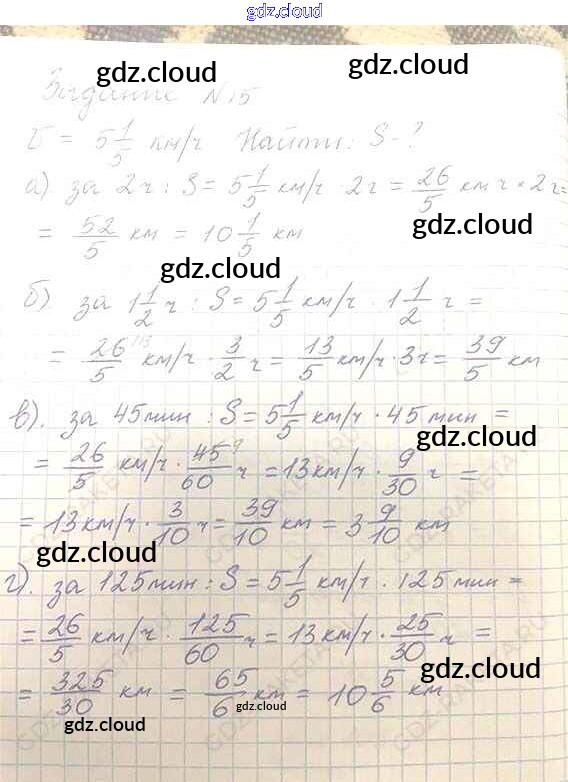 gdz.cloud
gdz.cloud
gdz.cloud
Задание №15
V = 5 1/5 км/ч Найти: S-?
а) за 2ч: S = 5 1/5 км/ч 2ч = 26/5 км ч · 2ч =
gdz.cloud
= 52/5 км = 10 1/5 км
gdz.cloud
б) за 1 1/2 ч : S = 5 1/5 км/ч · 1 1/2 ч =
= 26/5 км/ч · 3/2 ч = 13/5 км/ч · 3ч = 39/5 км
в). за 45мин : S = 5 1/5 км/ч · 45мин =
gdz.cloud
= 26/5 км/ч · 45/60 ч = 13км/ч · 9/30 ч =
= 13км/ч · 3/10 ч = 39/10 км = 3 9/10 км
gdz.cloud
г). за 125мин : S = 5 1/5 км/ч · 125мин =
= 26/5 км/ч · 125/60 ч = 13км/ч · 25/30 ч =
gdz.cloud
= 325/30 км = 65/6 км = 10 5/6 км
gdz.cloud